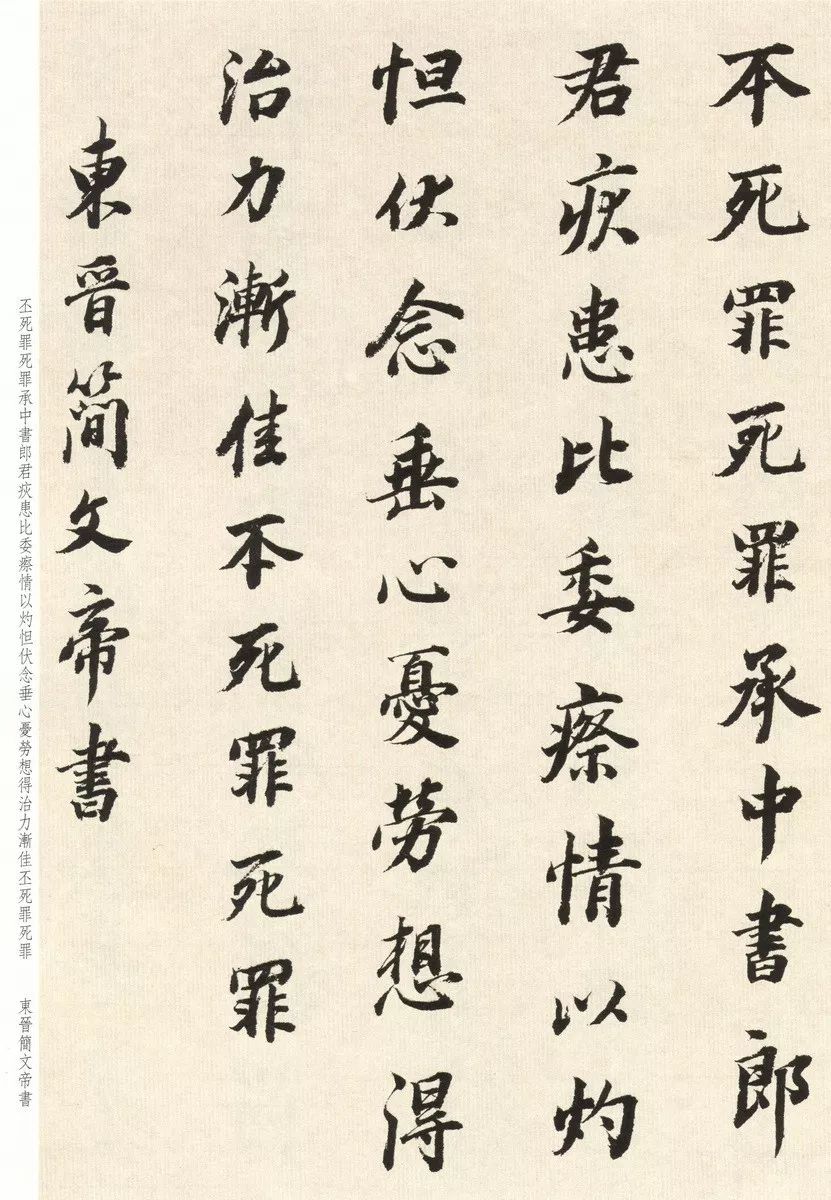 丕死罪死罪承中書郎
君疢患比委瘵情以灼
怛伏念垂心憂勞想得
治力漸佳丕死罪死罪
東晉簡文帝書
丕死罪死罪承中書郎君疢患比委瘵情以灼怛伏念垂心憂勞想得治力漸佳丕死罪死罪　東晉簡文帝書